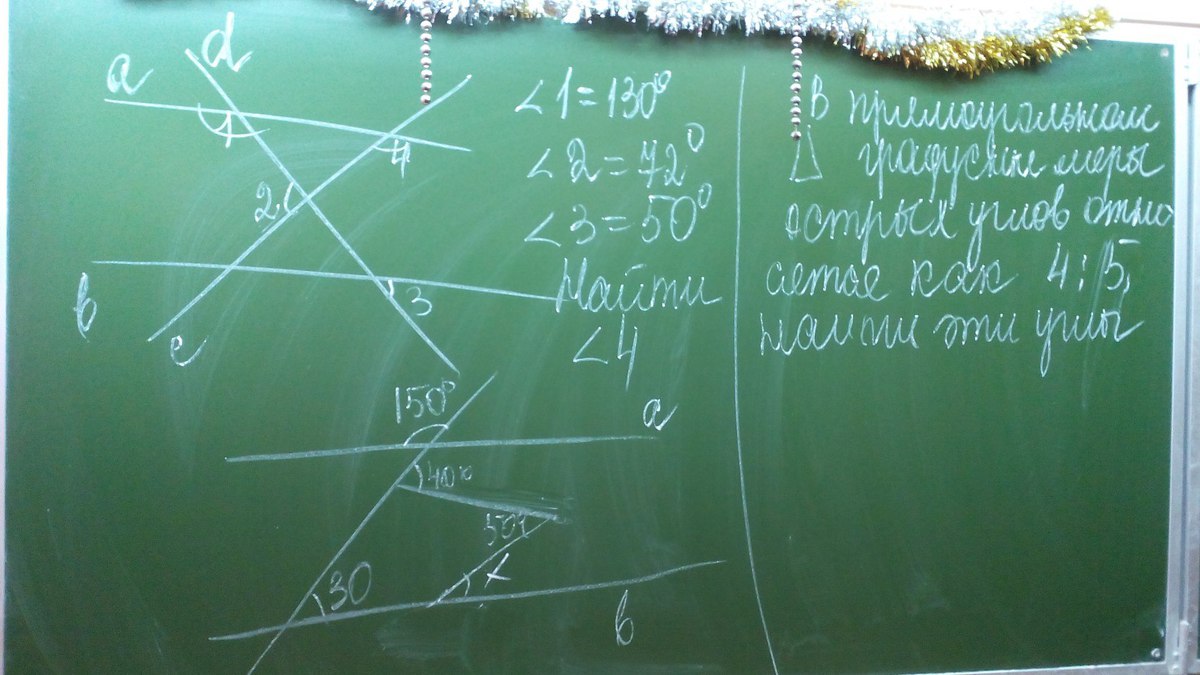 a
d
1
4
2
3
b
c
∠1=130°
∠2=72°
∠3=50°
Найти
∠4
150°
a
40°
50°
x
30
b
В прямоугольном
△ градусные меры
острых углов отно
сятся как 4:5,
найти эти углы